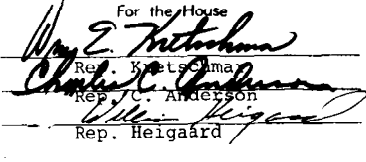 For the House
Wm E. Kretschmar
Rep. Kretschmar
Charles C. Anderson
Rep. C. Anderson
William Heigaard
Rep. Heigaard